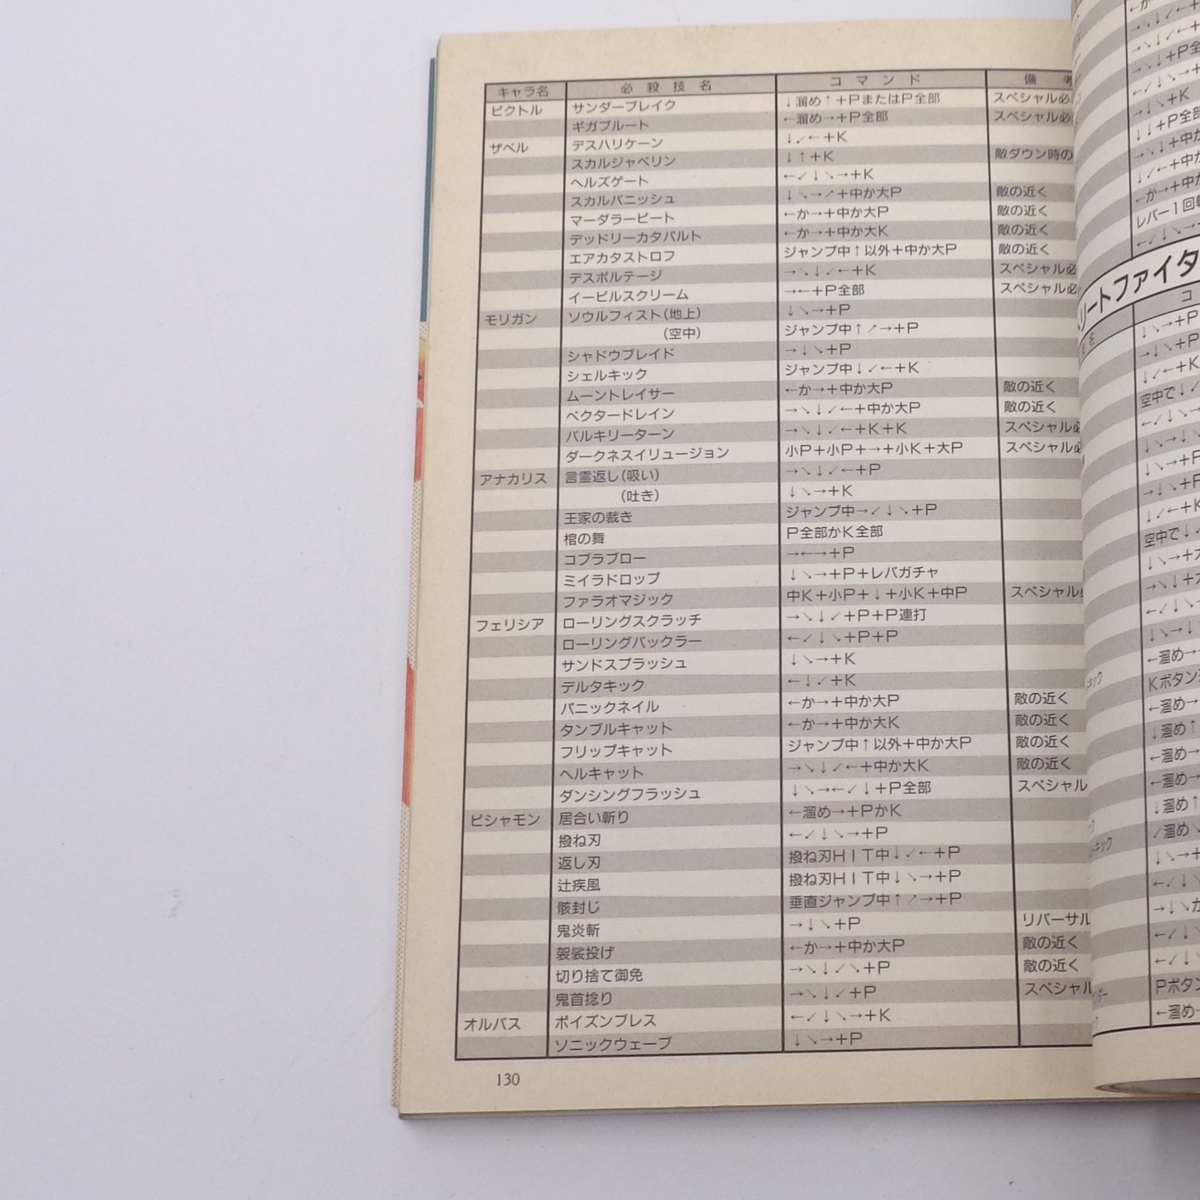 キャラ名 必殺技名 コマンド 備
ビクトル サンダーブレイク ↓溜め↑+PまたはP全部 スペシャル必
ギガブルート ←溜め→+P全部 スペシャル必
ザベル デスハリケーン ↓↙←+K
スカルジャベリン ↓↑+K 敵ダウン時の
ヘルズゲート ←↙↓↘→+K
スカルパニッシュ ↓↘→↗+中か大P 敵の近く
マーダラービート ←か→+中か大P 敵の近く
デッドリーカタパルト ←か→+中か大K 敵の近く
エアカタストロフ ジャンプ中↑以外+中か大P 敵の近く
デスボルテージ →↘↓↙←+K スペシャル必
イービルスクリーム →←+P全部 スペシャル必
モリガン ソウルフィスト(地上) ↓↘→+P
(空中) ジャンプ中↑↗→+P
シャドウブレイド →↓↘+P
シェルキック ジャンプ中↓↙←+K
ムーントレイサー ←か→+中か大P 敵の近く
ベクタードレイン →↘↓↙←+中か大P 敵の近く
バルキリーターン →↘↓↙←+K+K スペシャル必
ダークネスイリュージョン 小P+小P+→+小K+大P スペシャル必
アナカリス 言霊返し(吸い) →↘↓↙←+P
(吐き) ↓↘→+K
王家の裁き ジャンプ中→↙↓↘+P
棺の舞 P全部かK全部
コブラブロー →←→+P
ミイラドロップ ↓↘→+P+レバガチャ
ファラオマジック 中K+小P+↓+小K+中P スペシャル必
フェリシア ローリングスクラッチ →↘↓↙+P+P連打
ローリングバックラー ←↙↓↘+P+P
サンドスプラッシュ ↓↘→+K
デルタキック ←↓↙+K
パニックネイル ←か→+中か大P 敵の近く
タンブルキャット ←か→+中か大K 敵の近く
フリップキャット ジャンプ中↑以外+中か大P 敵の近く
ヘルキャット →↘↓↙←+中か大K 敵の近く
ダンシングフラッシュ ↓↘→←↙↓+P全部 スペシャル
ビシャモン 居合い斬り ←溜め→+PかK
撥ね刃 ←↙↓↘→+P
返し刃 撥ね刃HIT中↓↙←+P
辻疾風 撥ね刃HIT中↓↘→+P
骸封じ 垂直ジャンプ中↑↗→+P
鬼炎斬 →↓↘+P リバーサル
袈裟投げ ←か→+中か大P 敵の近く
切り捨て御免 →↘↓↙↘+P 敵の近く
鬼首捻り →↘↓↙+P スペシャル
オルバス ポイズンブレス ←↙↓↘→+K
ソニックウェーブ ↓↘→+P
130
→↘↓+P全
↓↘→+K
↓↓+P全部
→↘↓+中か
↓↙←+中か
←か→+中か
レバー1回
リートファイタ
コ
↓↘→+P
→↓↘+P
↓↙←+K
空中で↓↙
↓↘→+P
→↓↘+P
↓↙←+K
空中で↓↙
←溜め→
Kボタン
←溜め→
↓溜め↑
←溜め→
←溜め→
↓溜め↑
キック
Pボタン
←溜め→